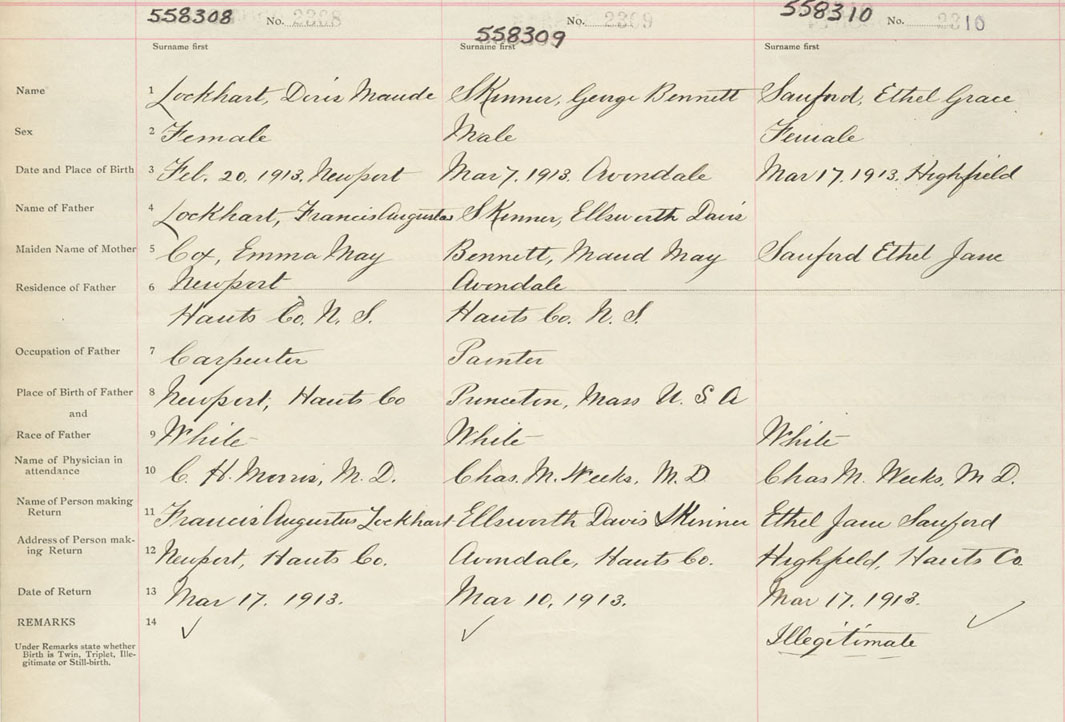 558308 No. 2308 558309 No. 2309 558310 No. 2310
Surname first Surname first Surname first
Name 1 Lockhart, Doris Maude Skinner, George Bennett Sanford, Ethel Grace
Sex 2 Female Male Female
Date and Place of Birth 3 Feb. 20, 1913. Newport Mar 7. 1913. Avondale Mar 17. 1913. Highfield
Name of Father 4 Lockhart, Francis Augustus Skinner, Ellsworth Davis
Maiden Name of Mother 5 Cox, Emma May Bennett, Maud May Sanford Ethel Jane
Residence of Father 6 Newport Avondale
Hants Co. N. S. Hants Co. N. S.
Occupation of Father 7 Carpenter Painter
Place of Birth of Father 8 Newport, Hants Co Princeton, Mass U. S. A
and
Race of Father 9 White White White
Name of Physician in
attendance 10 C. H. Morris, M. D. Chas. M. Weeks, M. D Chas M. Weeks, M D.
Name of Person making
Return 11 Francis Augustus Lockhart Ellsworth Davis Skinner Ethel Jane Sanford
Address of Person mak-
ing Return 12 Newport, Hants Co. Avondale, Hants Co. Highfield, Hants Co.
Date of Return 13 Mar 17. 1913. Mar 10, 1913. Mar 17. 1913.
REMARKS 14 ✓ ✓ ✓
Under Remarks state whether
Birth is Twin, Triplet, Ille-
gitimate or Still-birth.
Illegitimate